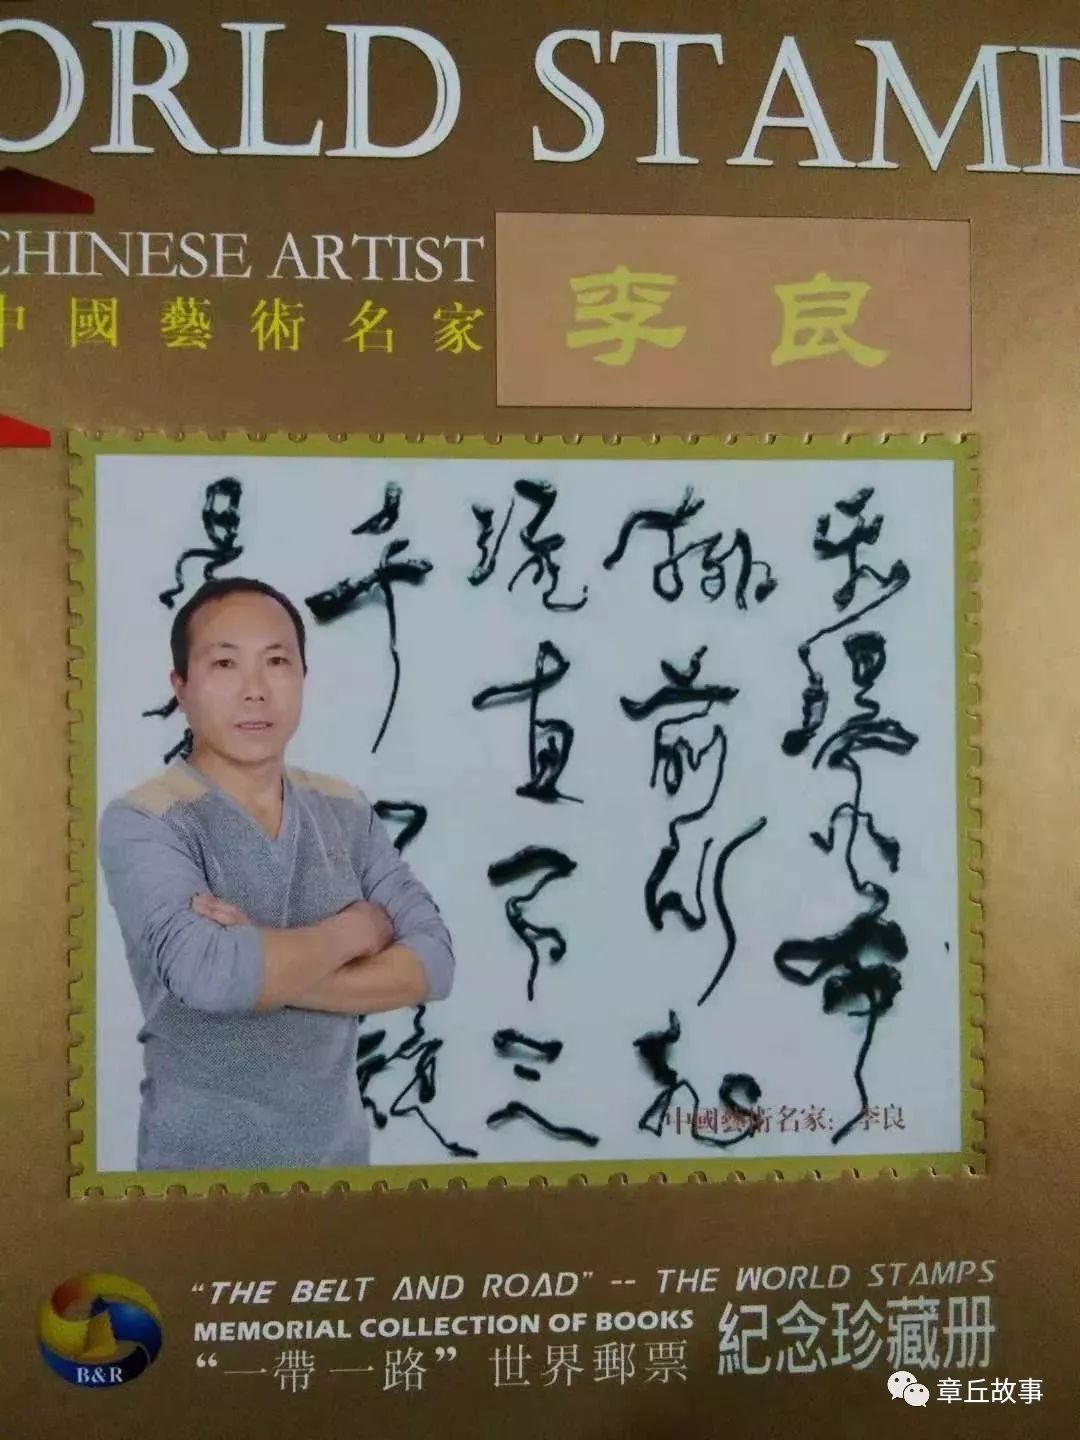 ORLD STAMP
CHINESE ARTIST
中國藝術名家
李良
是
千
流直下三
前川
中國藝術名家：李良
"THE BELT AND ROAD" -- THE WORLD STAMPS
MEMORIAL COLLECTION OF BOOKS
"一帶一路" 世界郵票
紀念珍藏册
B&R
章丘故事